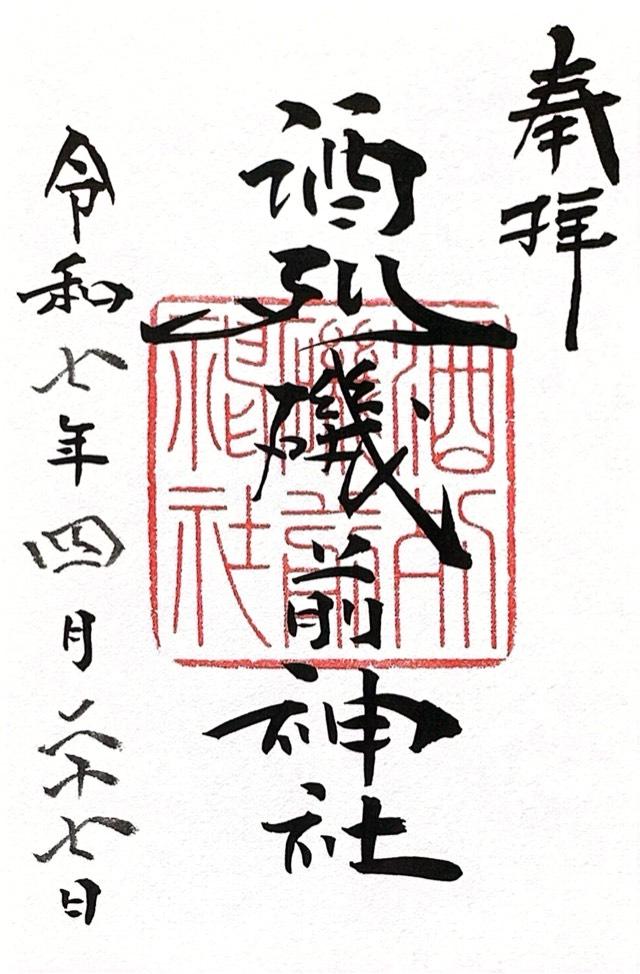 奉拝
酒列磯前神社
酒列
磯前
神社
令和七年四月二十七日